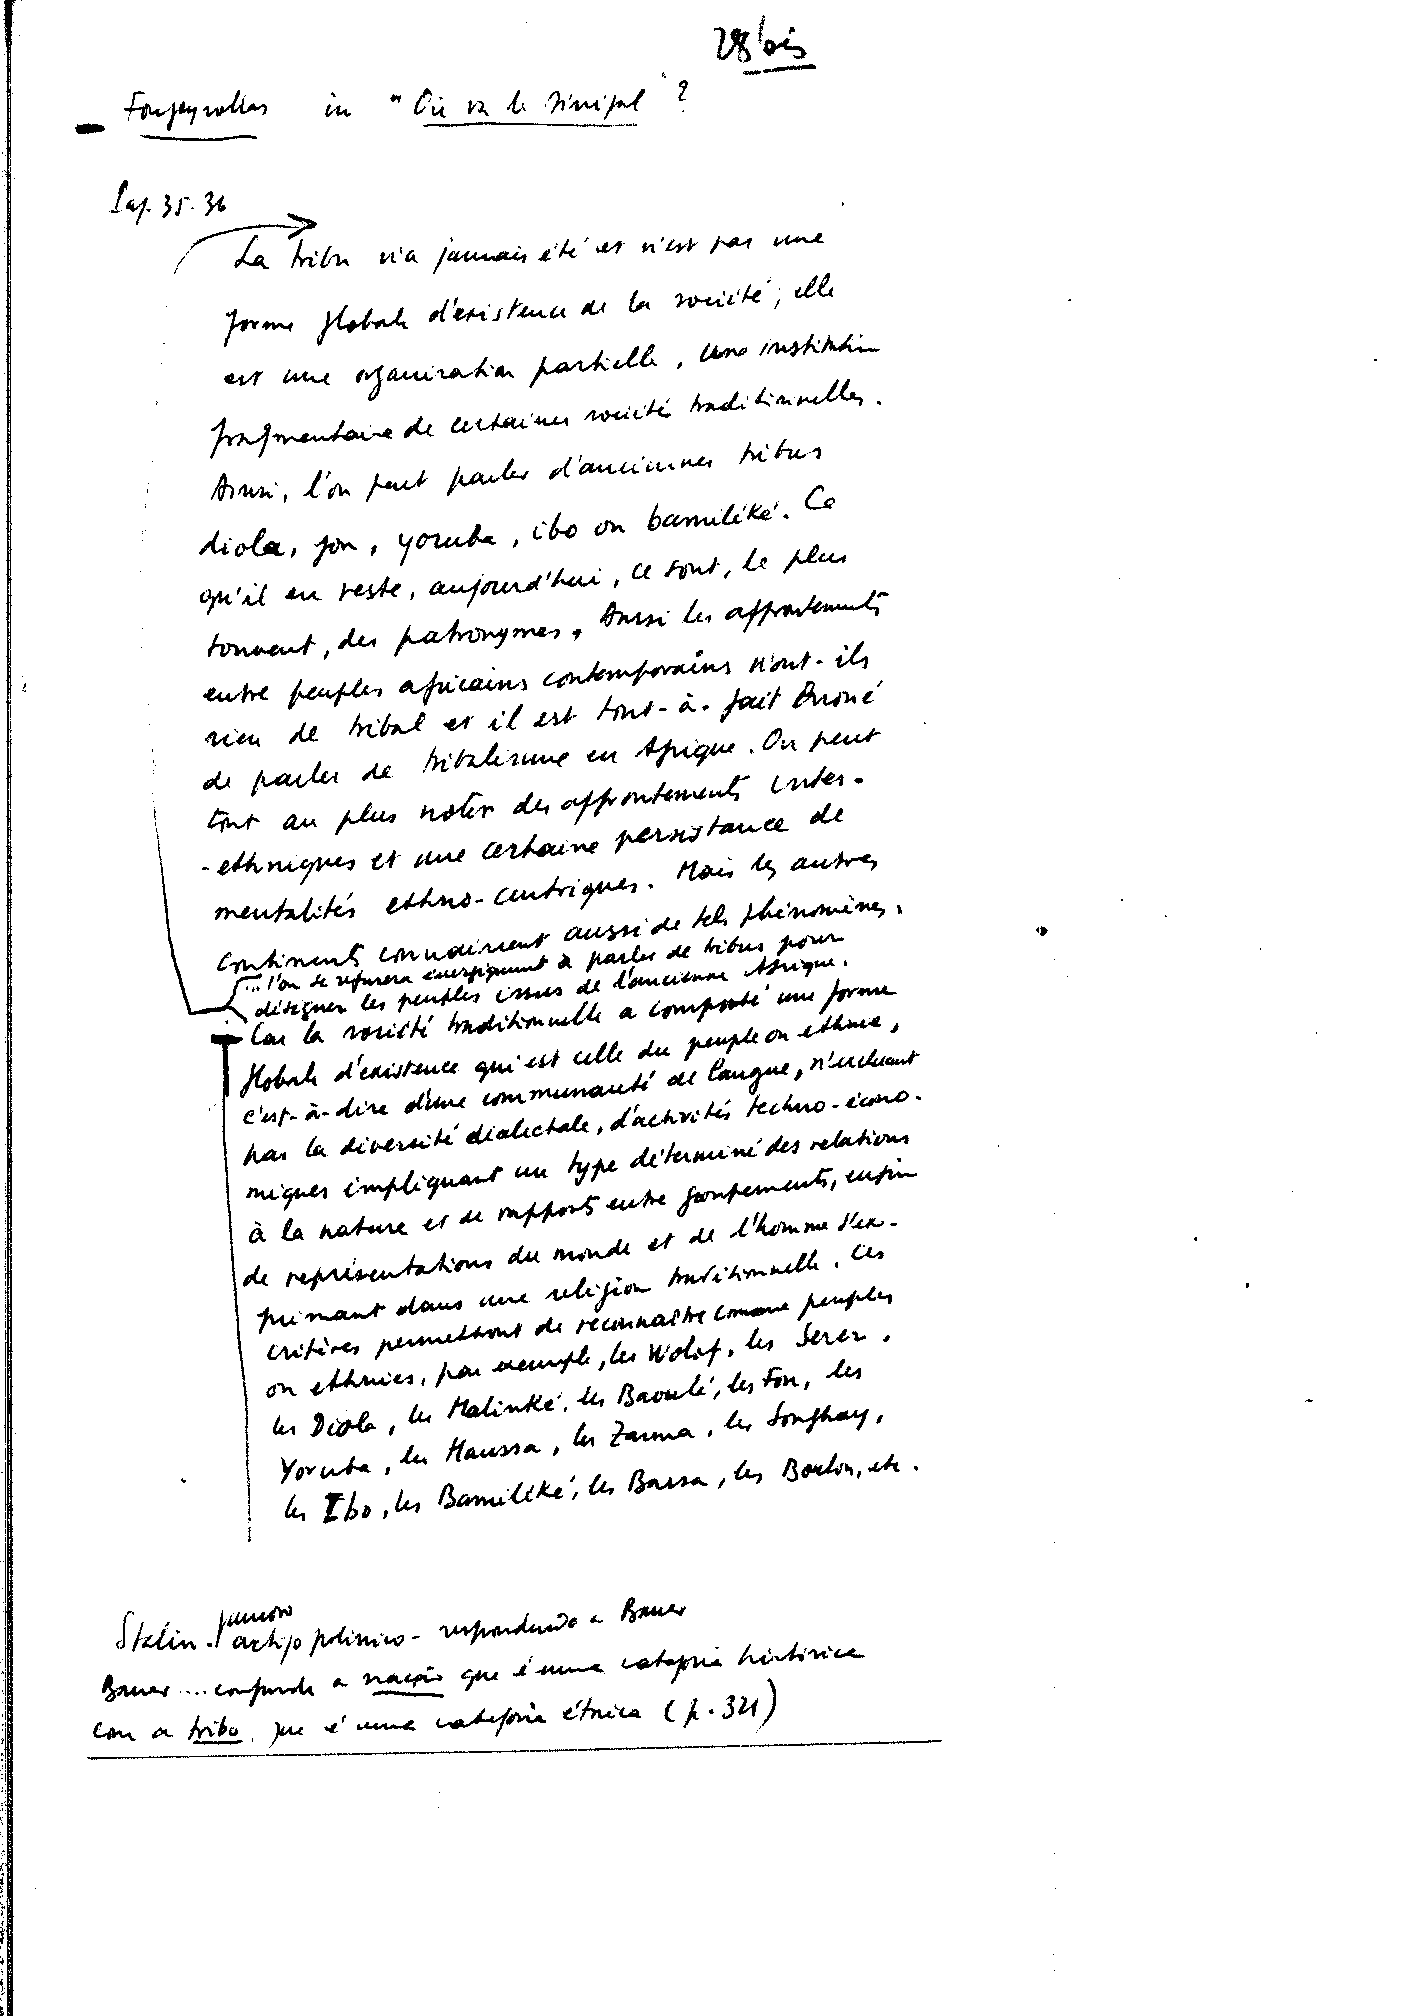 28 bis
Fougeyrollas in "Où va le Sénégal" ?
Pag. 35-36
La tribu n'a jamais été et n'est pas une
forme globale d'existence de la société ; elle
est une organisation partielle, une institution
fragmentaire de certaines société traditionnelles.
Ainsi, l'on peut parler d'anciennes tribus
diola, fon, yoruba, ibo ou bamiléké. Ce
qu'il en reste, aujourd'hui, ce sont, le plus
souvent, des patronymes. Aussi les affrontements
entre peuples africains contemporains n'ont-ils
rien de tribal et il est tout-à-fait erroné
de parler de tribalisme en Afrique. On peut
tout au plus noter des affrontements inter-
-ethniques et une certaine persistance de
mentalités ethno-centriques. Mais les autres
continents connaissent aussi de tels phénomènes.
... l'on se refusera énergiquement à parler de tribus pour
désigner les peuples issus de l'ancienne Afrique.
Car la société traditionnelle a comporté une forme
globale d'existence qui est celle du peuple ou ethnie,
c'est-à-dire d'une communauté de langue, n'excluant
pas la diversité dialectale, d'activités techno-écono-
miques impliquant un type déterminé des relations
à la nature et de rapports entre groupements, enfin
de représentations du monde et de l'homme s'ex-
primant dans une religion traditionnelle. Ces
critères permettront de reconnaître comme peuples
ou ethnies, par exemple, les Wolof, les Serer,
les Diola, les Malinké, les Baoulé, les Fon, les
Yoruba, les Haussa, les Zarma, les Songhay,
les Ibo, les Bamiléké, les Bassa, les Boulou, etc.
famoso
Stalin - artigo polémico - respondendo a Bauer
Bauer ... confunde a nação que é uma categoria histórica
com a tribo, que é uma categoria étnica (p. 321)